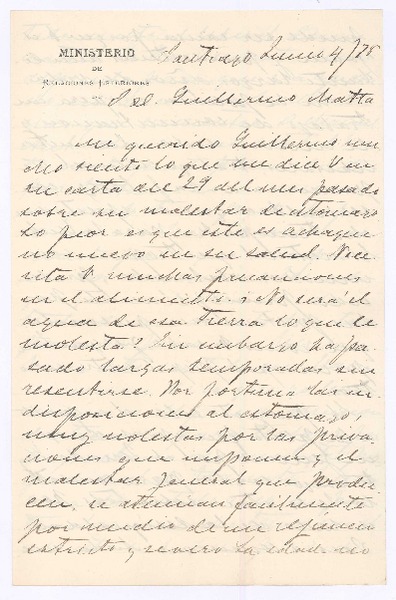 MINISTERIO
DE
RELACIONES EXTERIORES
Santiago Junio 4/78
S d. Guillermo Matta
Mi querido Guillermo mu
cho siento lo que me dice V en
su carta del 29 del mes pasado
sobre su malestar de estomago
Lo peor es que este es achaque
no nuevo en su salud. Nece
sita V. muchas precauciones
en el alimento. ¿No será el
agua de esa tierra lo que le
molesta? Sin embargo ha pa
sado largas temporadas sin
resentirse. Por fortuna las in
disposiciones al estomago,
muy molestas por las priva
ciones que imponen y el
malestar jeneral que produ
cen, se atenuan facilmente
por medio de un réjimen
estricto y severo La edad no